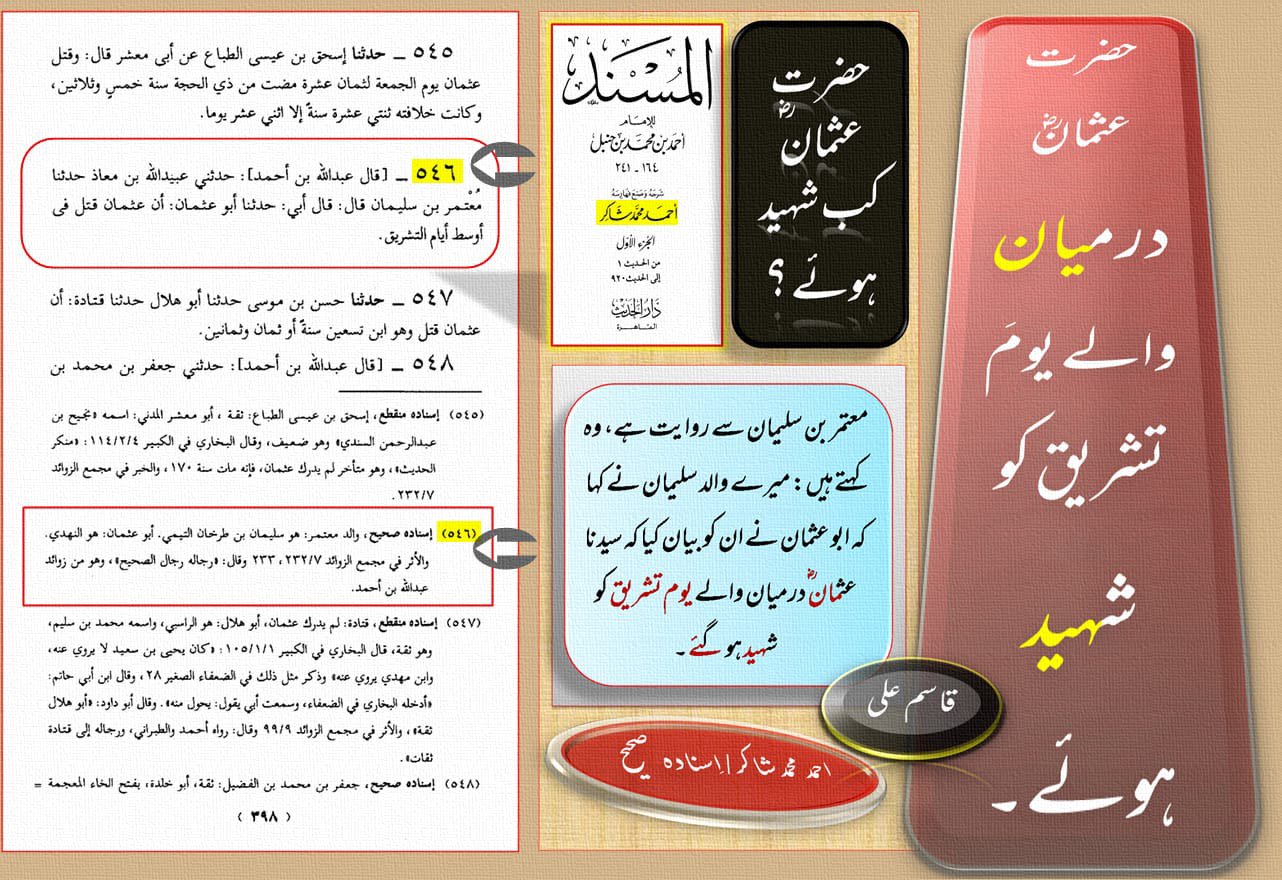 حضرت
عثمانؓ
درمیان
والے یومَ
تشریق کو
شہید
ہوئے۔
حضرت
عثمانؓ
کب شہید
ہوئے؟
المُسْنَد
للإمام
أحمد بن محمد بن حنبل
١٦٤ - ٢٤١
شرحه وصنع فهارسه
أحمد محمد شاكر
الجزء الأول
من الحديث ١
إلى الحديث ٩٢٠
دار الحديث
القاهرة
معتمر بن سلیمان سے روایت ہے، وہ
کہتے ہیں: میرے والد سلیمان نے کہا
کہ ابو عثمان نے ان کو بیان کیا کہ سیدنا
عثمانؓ درمیان والے یوم تشریق کو
شہید ہو گئے۔
قاسم علی
احمد محمد شاکر/اِسنادہ صحیح
٥٤٥ ـ حدثنا إسحق بن عيسى الطباع عن أبى معشر قال: وقتل
عثمان يوم الجمعة لثمان عشرة مضت من ذي الحجة سنة خمسٍ وثلاثين،
وكانت خلافته ثنتي عشرة سنةً إلا اثني عشر يوما.
٥٤٦ ـ [قال عبدالله بن أحمد]: حدثني عبيدالله بن معاذ حدثنا
مُعْتَمر بن سليمان قال: قال أبي: حدثنا أبو عثمان: أن عثمان قتل فى
أوسط أيام التشريق.
٥٤٧ ـ حدثنا حسن بن موسى حدثنا أبو هلال حدثنا قتادة: أن
عثمان قتل وهو ابن تسعين سنةً أو ثمان وثمانين.
٥٤٨ ـ [قال عبدالله بن أحمد]: حدثني جعفر بن محمد بن
(٥٤٥) إسناده منقطع، إسحق بن عيسى الطباع: ثقة، أبو معشر المدني: اسمه «نجيح بن
عبدالرحمن السندي» وهو ضعيف، وقال البخاري في الكبير ١١٤/٢/٤: «منكر
الحديث»، وهو متأخر لم يدرك عثمان، فإنه مات سنة ١٧٠، والخبر في مجمع الزوائد
٢٣٢/٧.
(٥٤٦) إسناده صحيح، والد معتمر: هو سليمان بن طرخان التيمي. أبو عثمان: هو النهدي.
والأثر في مجمع الزوائد ٢٣٢/٧، ٢٣٣ وقال: «رجاله رجال الصحيح»، وهو من زوائد
عبدالله بن أحمد.
(٥٤٧) إسناده منقطع، قتادة: لم يدرك عثمان، أبو هلال: هو الراسبي، واسمه محمد بن سليم،
وهو ثقة، قال البخاري في الكبير ١٠٥/١/١: «كان يحيى بن سعيد لا يروي عنه،
وابن مهدي يروي عنه» وذكر مثل ذلك في الضعفاء الصغير ٢٨، وقال ابن أبي حاتم:
«أدخله البخاري في الضعفاء، وسمعت أبي يقول: يحول منه». وقال أبو داود: «أبو هلال
ثقة»، والأثر في مجمع الزوائد ٩٩/٩ وقال: رواه أحمد والطبراني، ورجاله إلى قتادة
ثقات».
(٥٤٨) إسناده صحيح، جعفر بن محمد بن الفضيل: ثقة، أبو خلدة، بفتح الخاء المعجمة =
( ٣٩٨ )